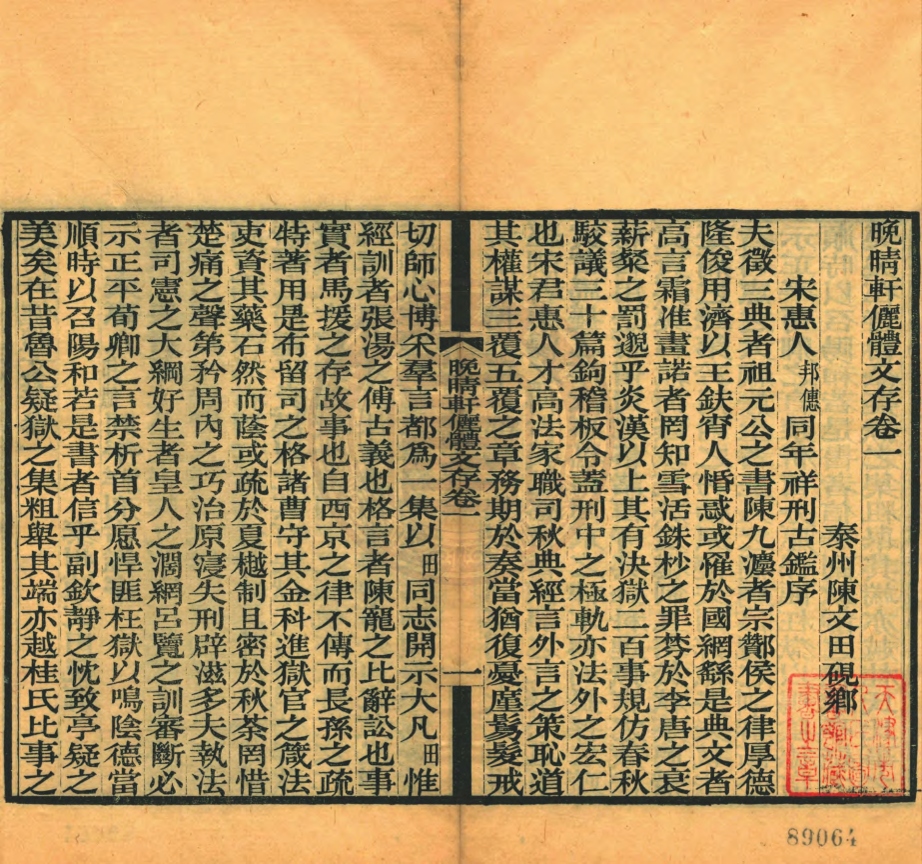 晚晴軒儷體文存卷一
泰州陳文田硯鄉
宋惠人邦僡同年祥刑古鑑序
夫徵三典者祖元公之書陳九灋者宗酇侯之律厚德
隆俊用濟以王鈇宵人惛惑或罹於國網繇是典文者
高言霜准畫諾者罔知雪活銖杪之罪棼於李唐之衰
薪粲之罰邈乎炎漢以上其有決獄二百事規仿春秋
駮議三十篇鉤稽板令蓋刑中之極軌亦法外之宏仁
也宋君惠人才高法家職司秋典經言外言之策恥道
其權謀三覆五覆之章務期於奏當猶復憂廑鬄髮戒
晚晴軒儷體文存卷一
切師心博采羣言都為一集以田同志開示大凡田惟
經訓者張湯之傅古義也格言者陳寵之比辭訟也事
實者馬援之存故事也自西京之律不傳而長孫之疏
特著用是布留司之格諸曹守其金科進獄官之箴法
吏資其藥石然而蔭或疏於夏樾制且密於秋荼罔惜
楚痛之聲第矜周內之巧治原寖失刑辟滋多夫執法
者司憲之大綱好生者皇人之濶網呂覽之訓審斷必
示正平荀卿之言禁析首分愿悍匪枉獄以鳴陰德當
順時以召陽和若是書者信乎副欽靜之忱致亭疑之
美矣在昔魯公疑獄之集粗舉其端亦越桂氏比事之
89064